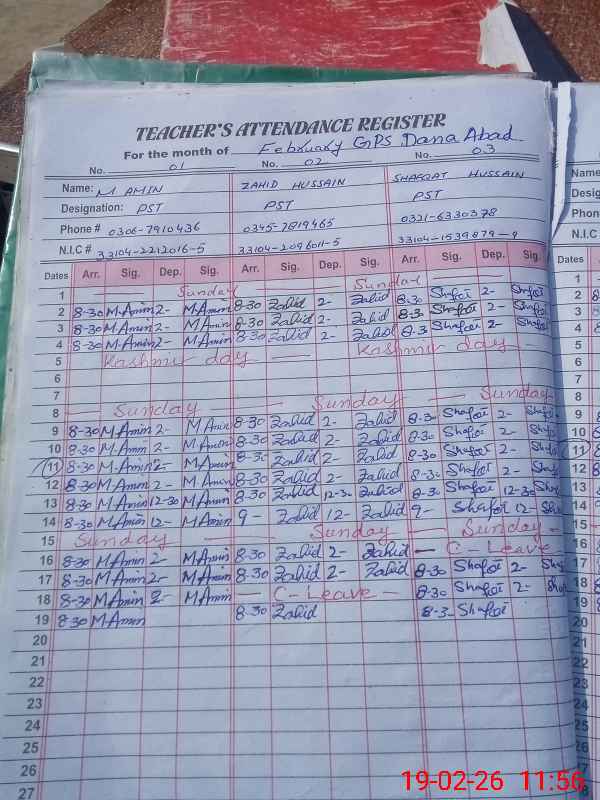 TEACHER'S ATTENDANCE REGISTER
For the month of February GPS Dana Abad
No. 01 No. 02 No. 03
Name: M AMIN ZAHID HUSSAIN SHAFQAT HUSSAIN
Designation: PST PST PST
Phone # 0306-7910436 0345-7819465 0321-6330378
N.I.C # 33104-2212016-5 33104-2096011-5 33104-1539879-9
Dates Arr. Sig. Dep. Sig. Arr. Sig. Dep. Sig. Arr. Sig. Dep. Sig.
1 Sunday Sunday
2 8-30 M.Amin 2- M.Amin 8-30 Zahid 2- Zahid 8-30 Shafqi 2- Shafqi
3 8-30 M.Amin 2- M.Amin 8-30 Zahid 2- Zahid 8-3 Shafqi 2- Shafqi
4 8-30 M.Amin 2- M.Amin 8-30 Zahid 2- Zahid 8-3 Shafqi 2- Shafqi
5 Kashmir day Kashmir day
6
7
8 Sunday Sunday Sunday
9 8-30 M.Amin 2- M Amin 8-30 Zahid 2- Zahid 8-30 Shafqi 2- Shafqi
10 8-30 M.Amin 2- M.Amin 8-30 Zahid 2- Zahid 8-30 Shafqi 2- Shafqi
11 8-30 M.Amin 2- M.Amin 8-30 Zahid 2- Zahid 8-30 Shafqi 2- Shafqi
12 8-30 M.Amin 2- M.Amin 8-30 Zahid 2- Zahid 8-30 Shafqi 2- Shafqi
13 8-30 M.Amin 12-30 M.Amin 8-30 Zahid 12-30 Zahid 8-30 Shafqi 12-30 Shafqi
14 8-30 M.Amin 12- M.Amin 9- Zahid 12- Zahid 9- Shafqi 12- Shafqi
15 Sunday Sunday Sunday
16 8-30 M.Amin 2- M.Amin 8-30 Zahid 2- Zahid C-Leave
17 8-30 M.Amin 2- M.Amin 8-30 Zahid 2- Zahid 8-30 Shafqi 2- Shafqi
18 8-30 M.Amin 2- M.Amin C-Leave 8-30 Shafqi 2- Shafqi
19 8-30 M.Amin 8-30 Zahid 8-3 Shafqi
20
21
22
23
24
25
26
27
19-02-26 11:56